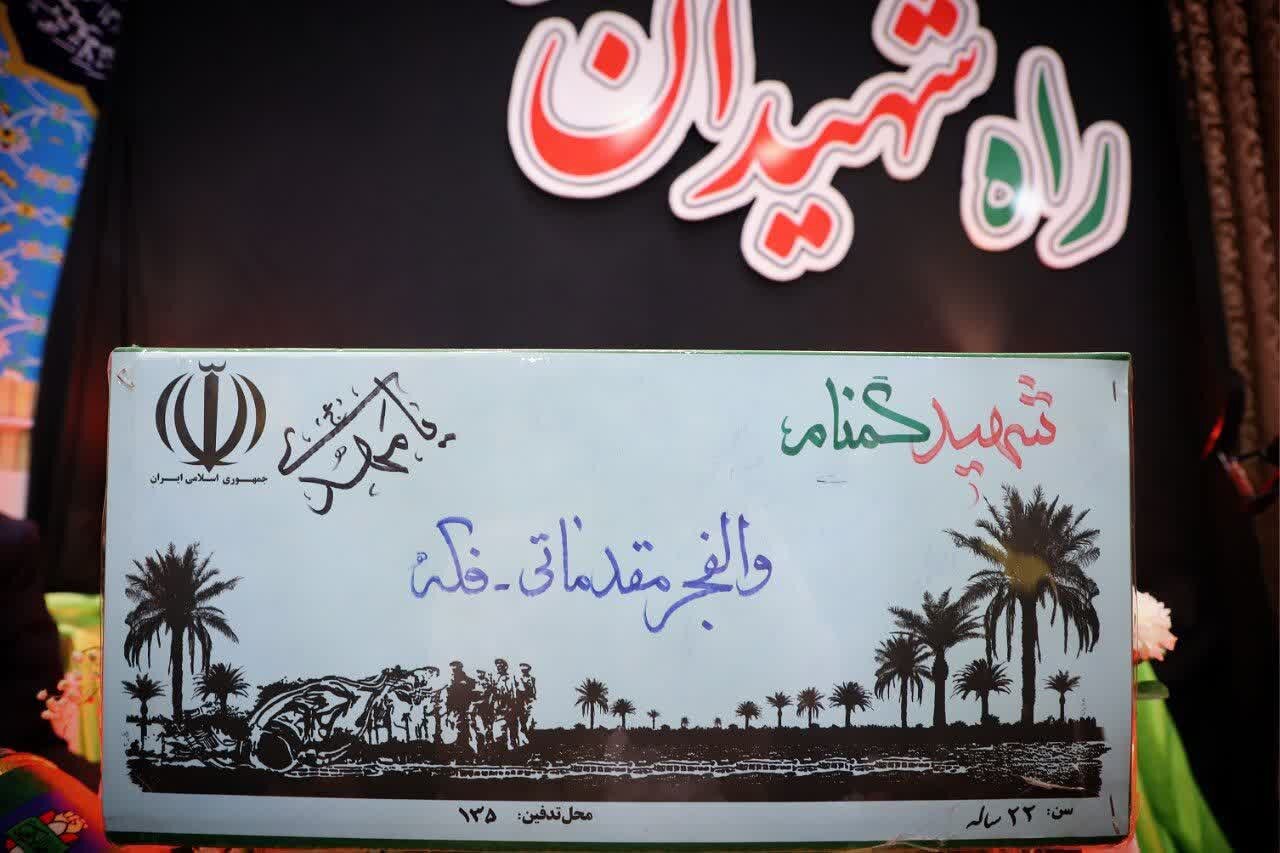 راه شهیدان
شهید گمنام
یا مهدی
جمهوری اسلامی ایران
والفجر مقدماتی - فکه
سن: ۲۲ ساله
محل تدفین: ۱۳۵